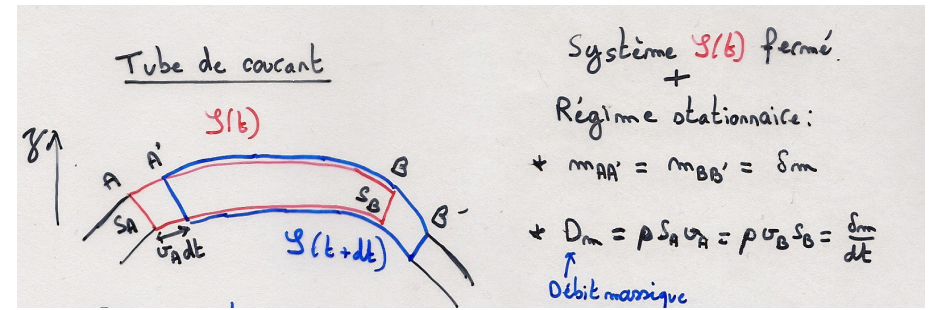 Tube de courant
𝒮(t)
z
A
A'
B
B'
S_A
S_B
v_A dt
𝒮(t+dt)
Système 𝒮(t) fermé.
+
Régime stationnaire :
* m_AA' = m_BB' = δm
* D_m = ρ S_A v_A = ρ v_B S_B = δm/dt
Débit massique